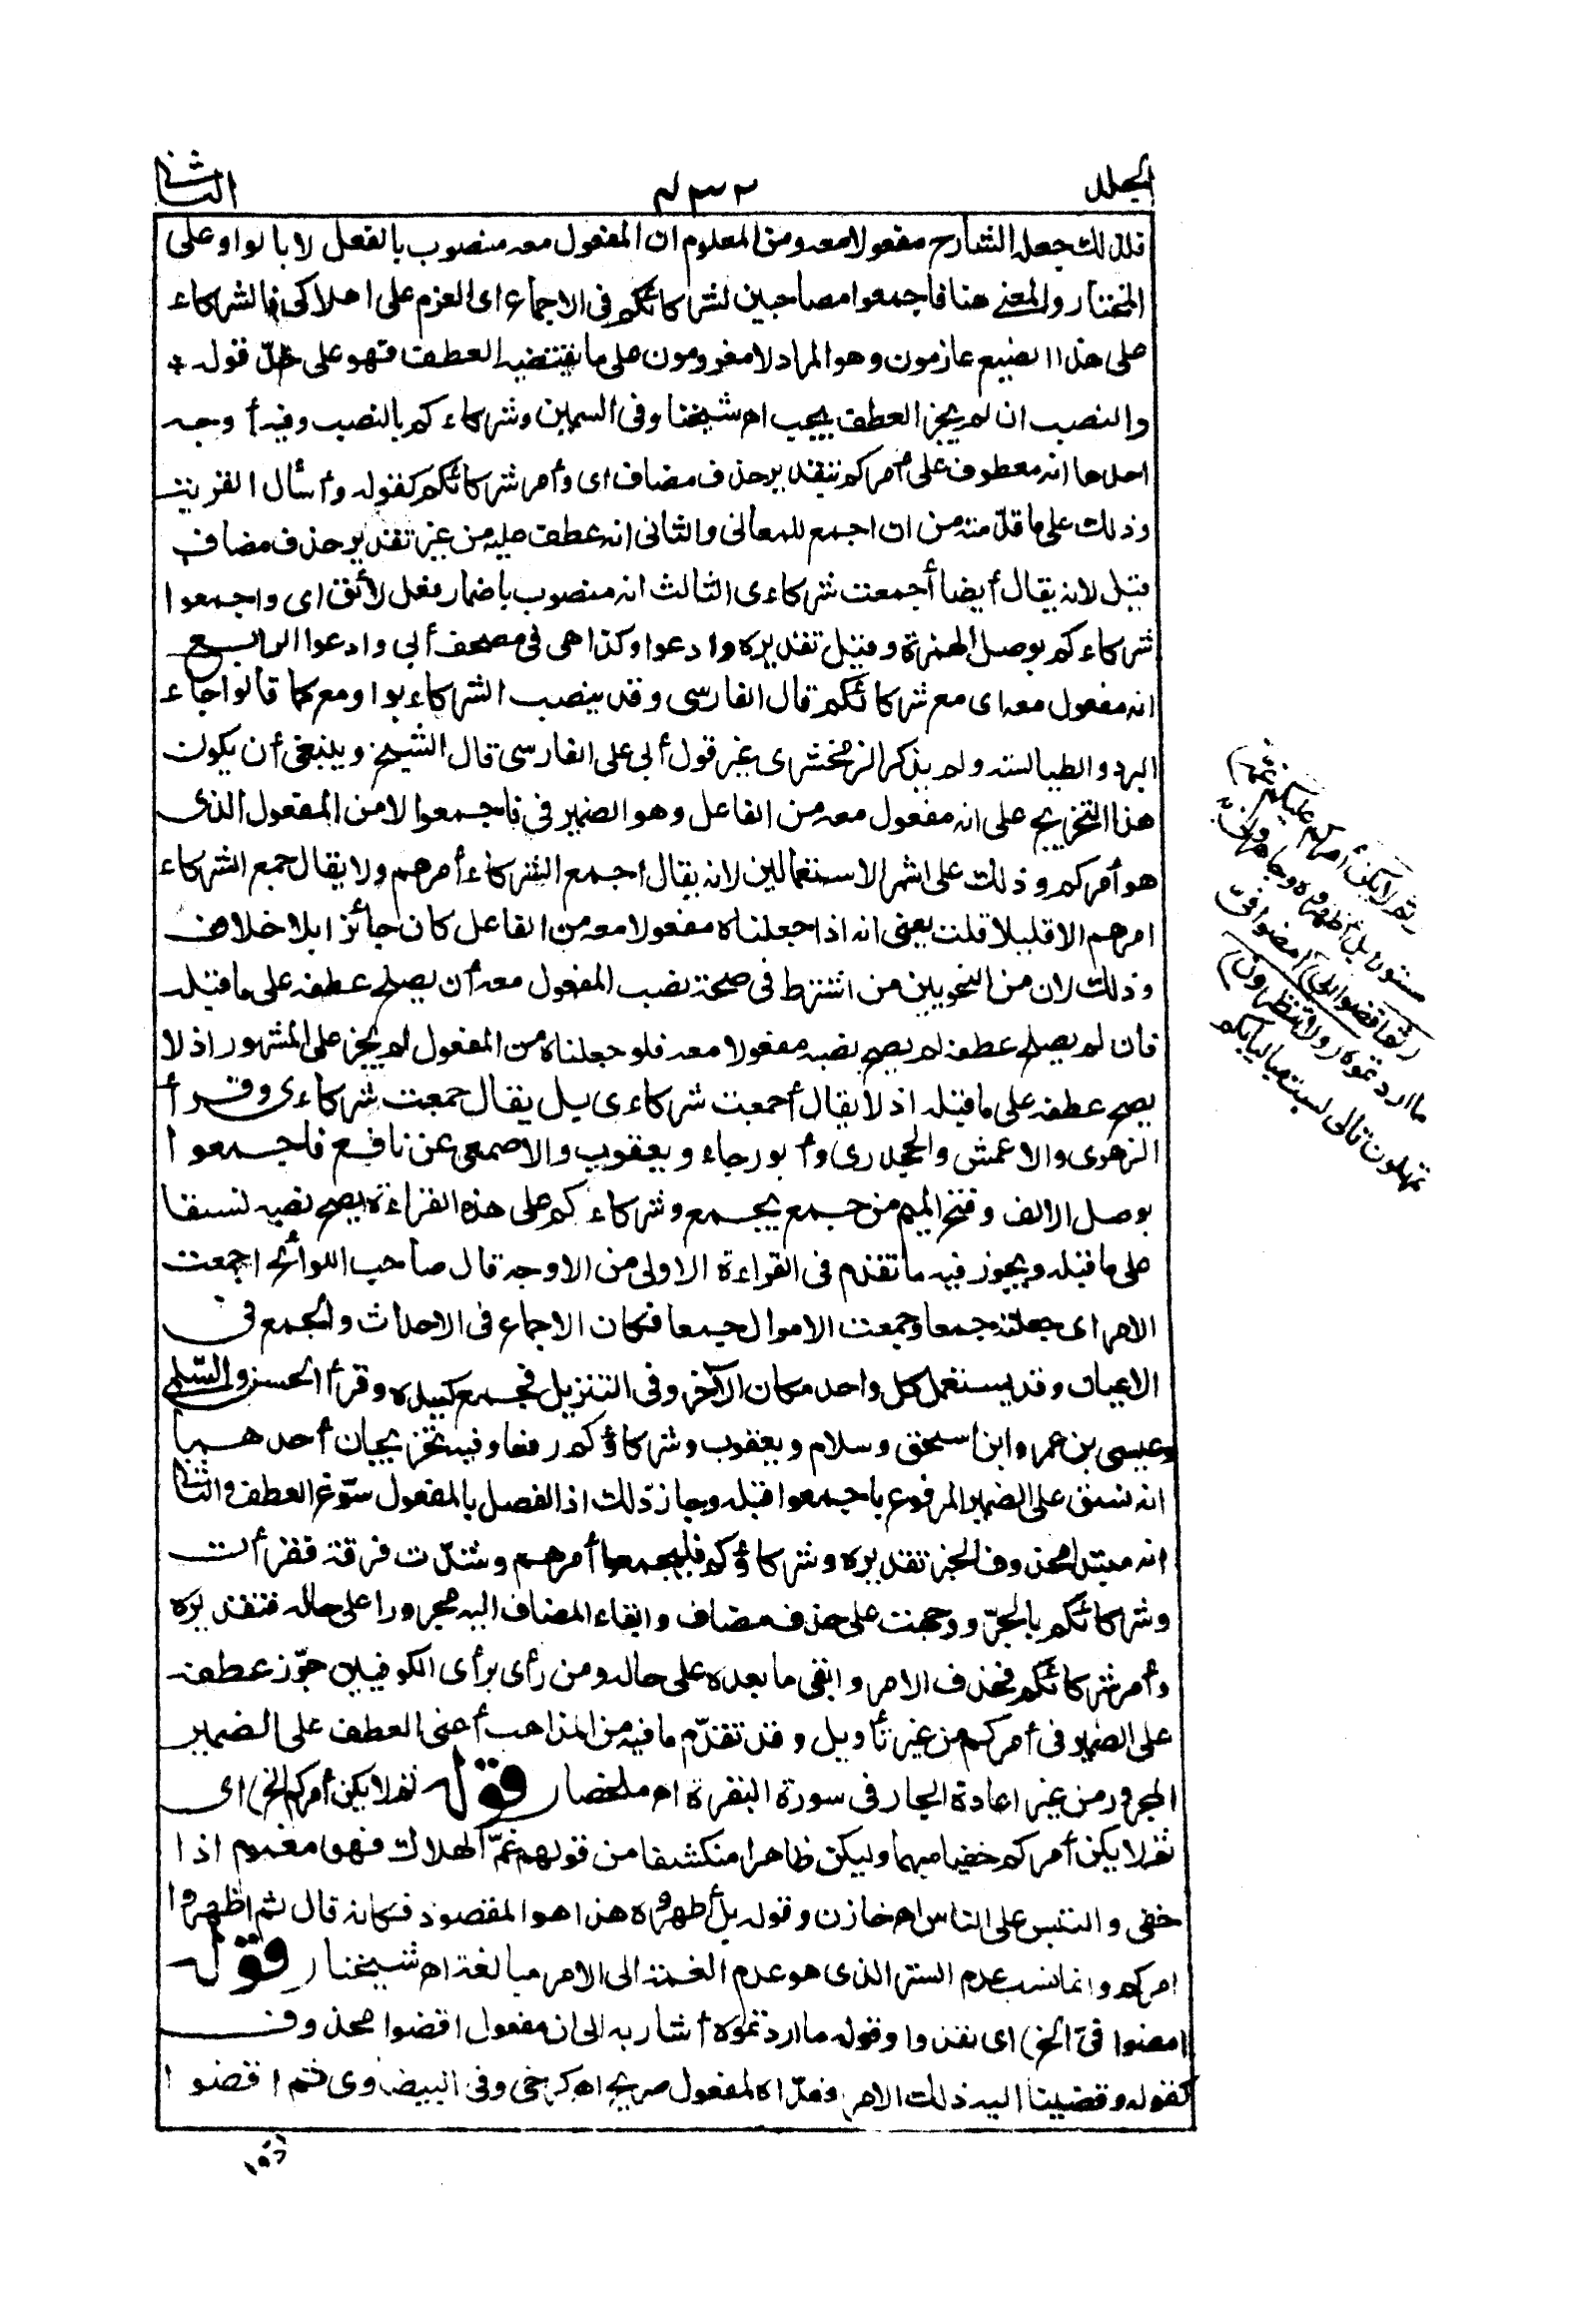 الجلد
٤٣٢
الثانى
فلذلك جعله الشارح مفعولا معه ومن المعلوم ان المفعول معه منصوب بالفعل لا بالواو على
المختار والمعنى هنا فاجمعوا مصاحبين لشركائكم فى الاجماع اى العزم على اهلاكى فالشركاء
على هذا الصنيع عازمون وهو المراد لا معزومون على ما يقتضيه العطف فهو على حدّ قوله
والنصب ان لم يجز العطف يجب اھ شيخنا وفى السمين وشركاءكم بالنصب وفيه أوجه
احدها انه معطوف على أمركم بتقدير حذف مضاف اى وأمر شركائكم كقوله وأسأل القرية
وذلك على ما قدّمته من ان اجمع للمعانى والثانى انه عطف عليه من غير تقدير حذف مضاف
قيل لانه يقال أيضا أجمعت شركاءى الثالث انه منصوب باضمار فعل لائق اى واجمعوا
شركاءكم بوصل الهمزة وقيل تقديره وادعوا وكذا هى فى مصحف أبي وادعوا الرابع
انه مفعول معه اى مع شركائكم قال الفارسى وقد ينصب الشركاء بواو مع كما قالوا جاء
البرد والطيالسة ولم يذكر الزمخشرى غير قول أبى على الفارسى قال الشيخ وينبغى أن يكون
هذا التخريج على انه مفعول معه من الفاعل وهو الضمير فى فاجمعوا لا من المفعول الذى
هو أمركم وذلك على اشهر الاستعمالين لانه يقال اجمع الشركاء أمرهم ولا يقال جمع الشركاء
امرهم الا قليلا قلت يعنى انه اذا جعلناه مفعولا معه من الفاعل كان جائزا بلا خلاف
وذلك لان من النحويين من اشترط فى صحة نصب المفعول معه أن يصلح عطفه على ما قبله
فان لم يصلح عطفه لم يصح نصبه مفعولا معه فلو جعلناه من المفعول لم يجز على المشهور اذ لا
يصح عطفه على ما قبله اذ لا يقال أجمعت شركاءى بل يقال جمعت شركاءى وقرأ
الزهرى والاعمش والجحدرى وأبو رجاء ويعقوب والاصمعى عن نافع فاجمعوا
بوصل الالف وفتح الميم من جمع يجمع وشركاءكم على هذه القراءة يصح نصبه نسقا
على ما قبله ويجوز فيه ما تقدم فى القراءة الاولى من الاوجه قال صاحب اللوائح اجمعت
الامر اى جعلته جمعا وجمعت الاموال جميعا فكان الاجماع فى الاحداث والجمع فى
الاعيان وقد يستعمل كل واحد مكان الآخر وفى التنزيل فجمع كيده وقرأ الحسن والسّلمى
وعيسى بن عمر وابن اسحق وسلام ويعقوب وشركاؤكم رفعا وفيه تخريجان أحدهما
انه نسق على الضمير المرفوع باجمعوا قبله وجاز ذلك اذ الفصل بالمفعول سوّغ العطف والثانى
انه مبتدا محذوف الخبر تقديره وشركاؤكم فليجمعوا أمرهم وشذّت فرقة فقرأت
وشركائكم بالجرّ ووجهت على حذف مضاف وابقاء المضاف اليه مجرورا على حاله فتقديره
وأمر شركائكم فحذف الامر وابقى ما بعده على حاله ومن رأى برأى الكوفيين جوّز عطفه
على الضمير فى أمركم من غير تأويل وقد تقدّم ما فيه من المذاهب أعنى العطف على الضمير
المجرور من غير اعادة الجار فى سورة البقرة اھ ملخصا (قوله ثم لا يكن أمركم الخ) اى
ثم لا يكن أمركم خفيا مبهما وليكن ظاهرا منكشفا من قولهم غمّ الهلال فهو مغموم اذا
خفى والتبس على الناس اھ خازن وقوله بل أظهروه هذا هو المقصود فكانه قال ثم اظهروا
امركم وانما نسب عدم الستر الذى هو عدم الغمة الى الامر مبالغة اھ شيخنا (قوله
امضوا فىّ الخ) اى نفذوا وقوله ما اردتموه أشار به الى ان مفعول اقضوا محذوف
كقوله وقضينا اليه ذلك الامر فعدّاه لمفعول صريح اھ كرخى وفى البيضاوى ثم اقضوا
(ثم لا يكن أمركم عليكم غمة)
مستورا بل أظهروه وجاهرونى به
(ثم اقضوا الى) امضوا فىّ
ما اردتموه (ولا تنظرون)
تمهلون فانى لست مباليا بكم